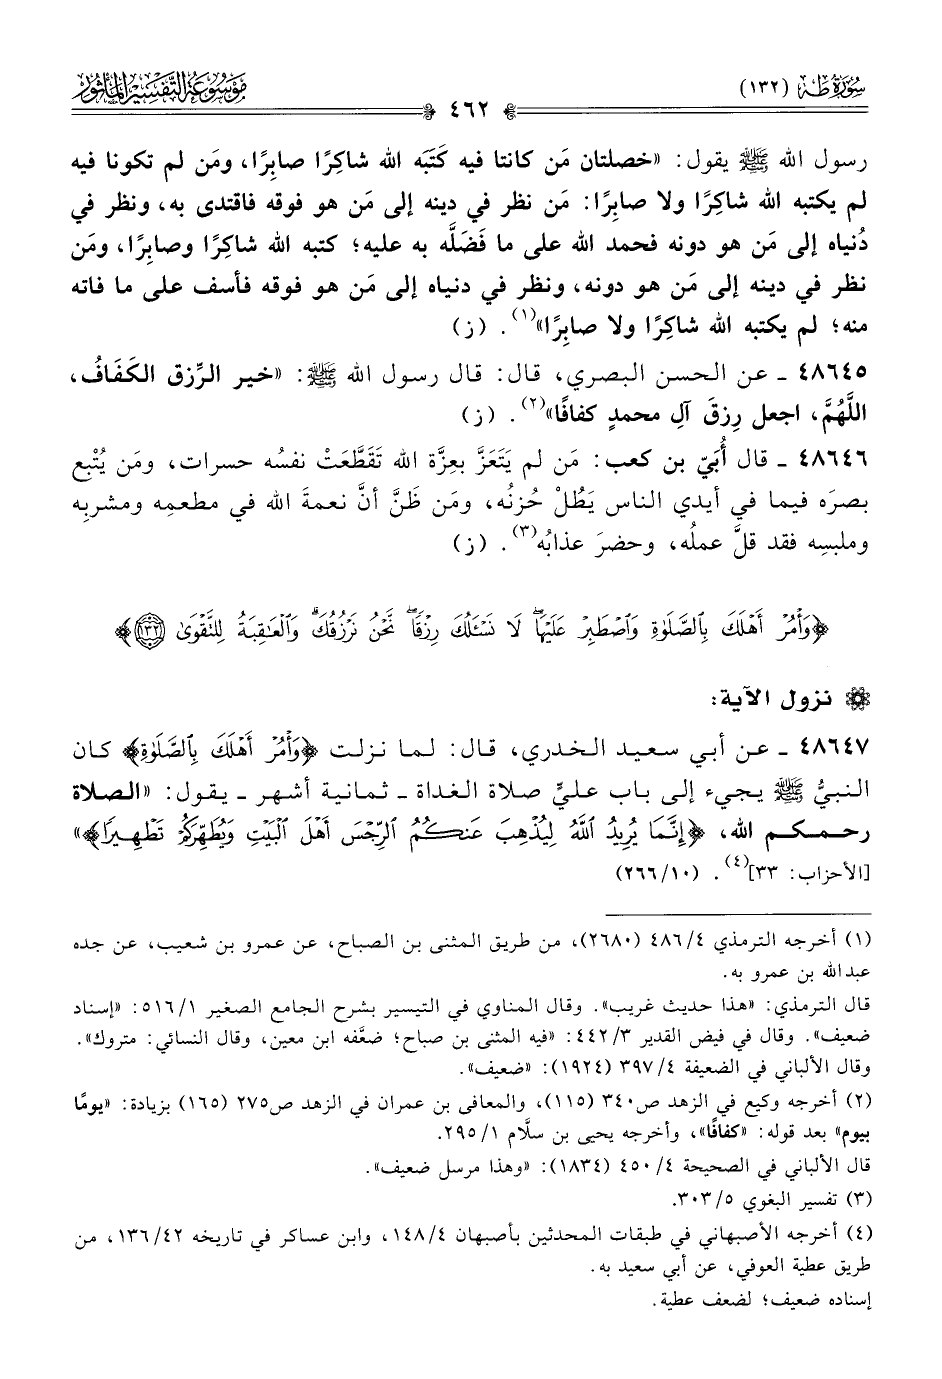 سُورَةُ طه (١٣٢)
موسوعة التفسير المأثور
٤٦٢
رسول الله ﷺ يقول: «خصلتان مَن كانتا فيه كَتَبَه الله شاكِرًا صابِرًا، ومَن لم تكونا فيه
لم يكتبه الله شاكِرًا ولا صابِرًا: مَن نظر في دينه إلى مَن هو فوقه فاقتدى به، ونظر في
دُنياه إلى مَن هو دونه فحمد الله على ما فَضَّلَه به عليه؛ كتبه الله شاكِرًا وصابِرًا، ومَن
نظر في دينه إلى مَن هو دونه، ونظر في دنياه إلى مَن هو فوقه فأسف على ما فاته
منه؛ لم يكتبه الله شاكِرًا ولا صابِرًا»(١). (ز)
٤٨٦٤٥ ـ عن الحسن البصري، قال: قال رسول الله ﷺ: «خير الرِّزق الكَفَافُ،
اللَّهُمَّ، اجعل رِزقَ آلِ محمدٍ كفافًا»(٢). (ز)
٤٨٦٤٦ ـ قال أُبَيّ بن كعب: مَن لم يَتَعَزَّ بعِزَّة الله تَقَطَّعَتْ نفسُه حسرات، ومَن يُتْبِع
بصرَه فيما في أيدي الناس يَطُلْ حُزنُه، ومَن ظَنَّ أنَّ نعمةَ الله في مطعمِه ومشربِه
وملبسِه فقد قلَّ عملُه، وحضرَ عذابُه(٣). (ز)
﴿وَأْمُرْ أَهْلَكَ بِالصَّلَوٰةِ وَاصْطَبِرْ عَلَيْهَا ۖ لَا نَسْـَٔلُكَ رِزْقًا ۖ نَّحْنُ نَرْزُقُكَ ۗ وَالْعَـٰقِبَةُ لِلتَّقْوَىٰ ١٣٢﴾
نزول الآية:
٤٨٦٤٧ ـ عن أبي سعيد الخدري، قال: لما نزلت ﴿وَأْمُرْ أَهْلَكَ بِالصَّلَوٰةِ﴾ كان
النبيُّ ﷺ يجيء إلى باب عليٍّ صلاة الغداة ـ ثمانية أشهر ـ يقول: «الصلاة
رحمكم الله، ﴿إِنَّمَا يُرِيدُ اللَّهُ لِيُذْهِبَ عَنكُمُ الرِّجْسَ أَهْلَ الْبَيْتِ وَيُطَهِّرَكُمْ تَطْهِيرًا﴾»
[الأحزاب: ٣٣](٤). (١٠/ ٢٦٦)
(١) أخرجه الترمذي ٤/ ٤٨٦ (٢٦٨٠)، من طريق المثنى بن الصباح، عن عمرو بن شعيب، عن جده
عبدالله بن عمرو به.
قال الترمذي: «هذا حديث غريب». وقال المناوي في التيسير بشرح الجامع الصغير ١/ ٥١٦: «إسناد
ضعيف». وقال في فيض القدير ٣/ ٤٤٢: «فيه المثنى بن صباح؛ ضعَّفه ابن معين، وقال النسائي: متروك».
وقال الألباني في الضعيفة ٤/ ٣٩٧ (١٩٢٤): «ضعيف».
(٢) أخرجه وكيع في الزهد ص٣٤٠ (١١٥)، والمعافى بن عمران في الزهد ص٢٧٥ (١٦٥) بزيادة: «يومًا
بيوم» بعد قوله: «كفافًا»، وأخرجه يحيى بن سلَّام ١/ ٢٩٥.
قال الألباني في الصحيحة ٤/ ٤٥٠ (١٨٣٤): «وهذا مرسل ضعيف».
(٣) تفسير البغوي ٥/ ٣٠٣.
(٤) أخرجه الأصبهاني في طبقات المحدثين بأصبهان ٤/ ١٤٨، وابن عساكر في تاريخه ٤٢/ ١٣٦، من
طريق عطية العوفي، عن أبي سعيد به.
إسناده ضعيف؛ لضعف عطية.